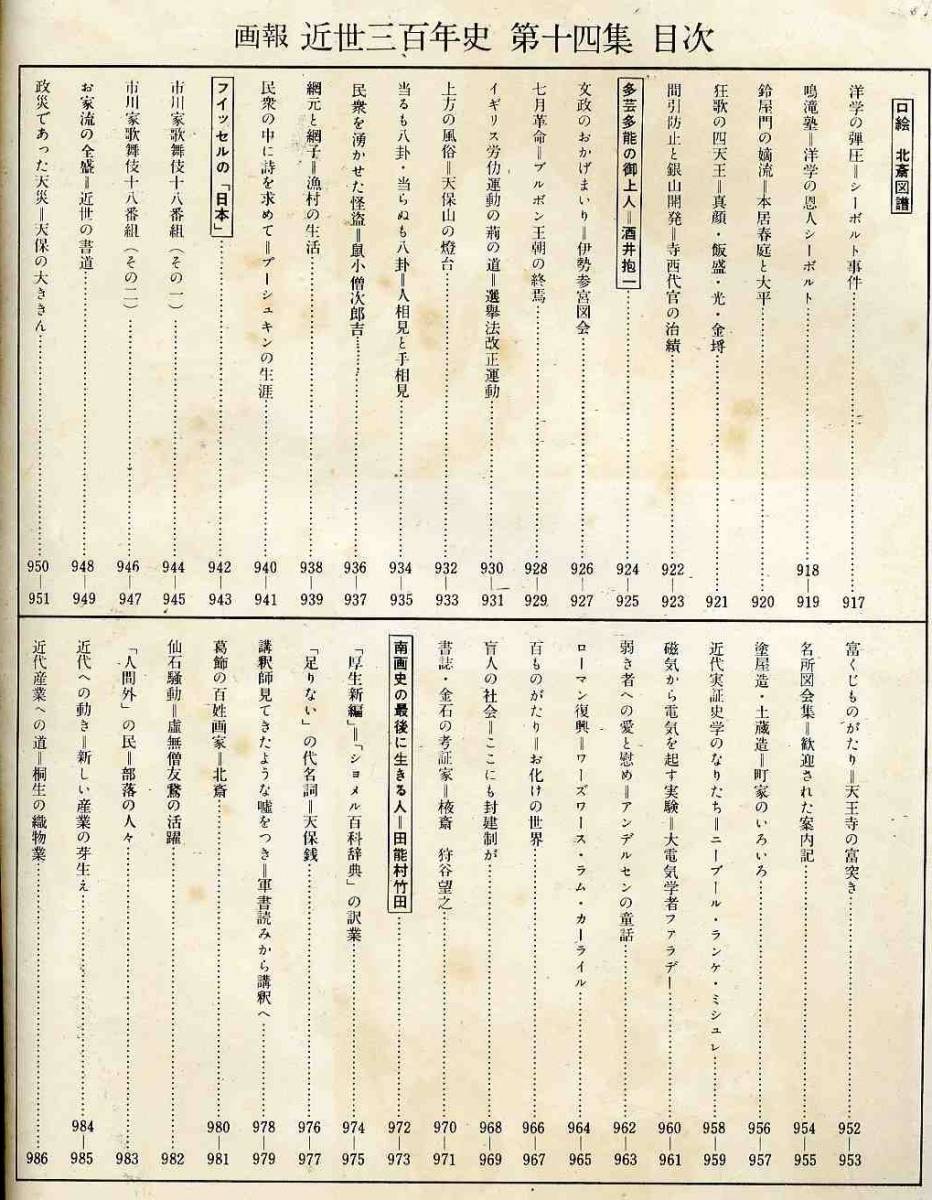 画報 近世三百年史 第十四集 目次
口絵 北斎図譜
洋学の弾圧＝シーボルト事件 917
鳴滝塾＝洋学の恩人シーボルト 918―919
鈴屋門の嫡流＝本居春庭と大平 920
狂歌の四天王＝真顔・飯盛・光・金埒 921
間引防止と銀山開発＝寺西代官の治績 922―923
多芸多能の御上人＝酒井抱一 924―925
文政のおかげまいり＝伊勢参宮図会 926―927
七月革命＝ブルボン王朝の終焉 928―929
イギリス労仂運動の荊の道＝選挙法改正運動 930―931
上方の風俗＝天保山の燈台 932―933
当るも八卦・当らぬも八卦＝人相見と手相見 934―935
民衆を湧かせた怪盗＝鼠小僧次郎吉 936―937
網元と網子＝漁村の生活 938―939
民衆の中に詩を求めて＝プーシュキンの生涯 940―941
フイッセルの「日本」 942―943
市川家歌舞伎十八番組（その一） 944―945
市川家歌舞伎十八番組（その二） 946―947
お家流の全盛＝近世の書道 948―949
政災であった天災＝天保の大ききん 950―951
富くじものがたり＝天王寺の富突き 952―953
名所図会集＝歓迎された案内記 954―955
塗屋造・土蔵造＝町家のいろいろ 956―957
近代実証史学のなりたち＝ニーブール・ランケ・ミシュレ 958―959
磁気から電気を起す実験＝大電気学者ファラデー 960―961
弱き者への愛と慰め＝アンデルセンの童話 962―963
ローマン復興＝ワーズワース・ラム・カーライル 964―965
百ものがたり＝お化けの世界 966―967
盲人の社会＝ここにも封建制が 968―969
書誌・金石の考証家＝棭斎 狩谷望之 970―971
南画史の最後に生きる人＝田能村竹田 972―973
「厚生新編」＝「ショメル百科辞典」の訳業 974―975
「足りない」の代名詞＝天保銭 976―977
講釈師見てきたような嘘をつき＝軍書読みから講釈へ 978―979
葛飾の百姓画家＝北斎 980―981
仙石騒動＝虚無僧友鵞の活躍 982
「人間外」の民＝部落の人々 983
近代への動き＝新しい産業の芽生え 984―985
近代産業への道＝桐生の織物業 986